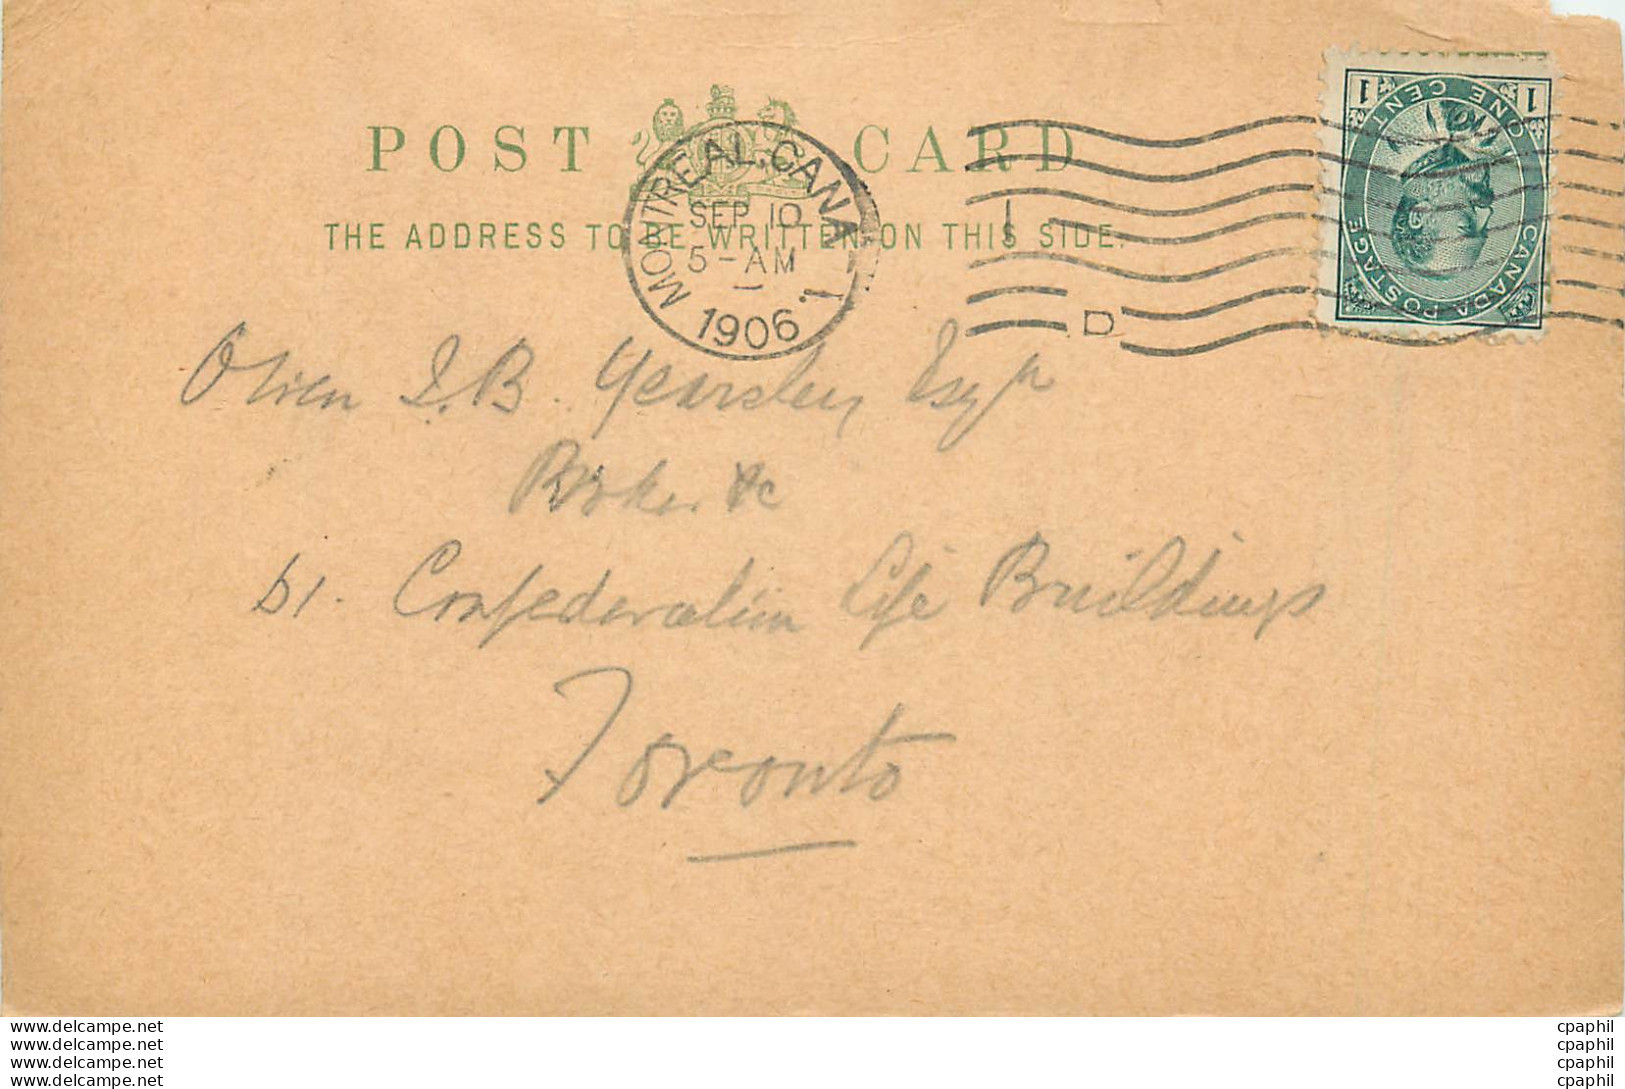 POST CARD
THE ADDRESS TO BE WRITTEN ON THIS SIDE.
MONTREAL, CANA
SEP 10
5-AM
1906
D
1 ONE CENT 1
CANADA POSTAGE
J.B. Yearsley Esqr
Broker &c
61. Confederation Life Buildings
Toronto
www.delcampe.net
www.delcampe.net
www.delcampe.net
www.delcampe.net
cpaphil
cpaphil
cpaphil
cpaphil